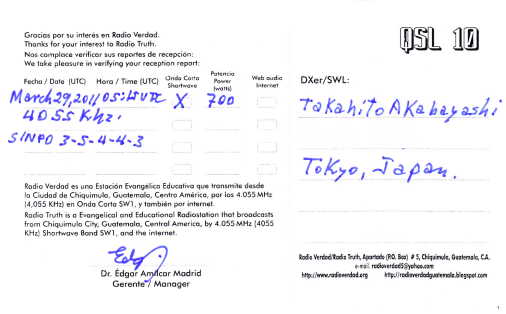 Gracias por su interés en Radio Verdad.
Thanks for your interest to Radio Truth.
Nos complace verificar sus reportes de recepción:
We take pleasure in verifying your reception report:
Fecha / Date (UTC) Hora / Time (UTC) Onda Corta Shortwave Potencia Power (watts) Web audio Internet
March 29, 2011 05:15 UTC X 700
4055 KHz.
SINPO 3-5-4-4-3
Radio Verdad es una Estación Evangélica Educativa que transmite desde
la Ciudad de Chiquimula, Guatemala, Centro América, por los 4.055 MHz
(4,055 KHz) en Onda Corta SW1, y también por internet.
Radio Truth is a Evangelical and Educational Radiostation that broadcasts
from Chiquimula City, Guatemala, Central America, by 4.055 MHz (4055
KHz) Shortwave Band SW1, and the internet.
Dr. Édgar Amílcar Madrid
Gerente / Manager
QSL 10
DXer/SWL:
Takahito Akabayashi
Tokyo, Japan.
Radio Verdad/Radio Truth, Apartado (P.O. Box) # 5, Chiquimula, Guatemala, C.A.
e-mail: radioverdad5@yahoo.com
http://www.radioverdad.org http://radioverdadguatemala.blogspot.com